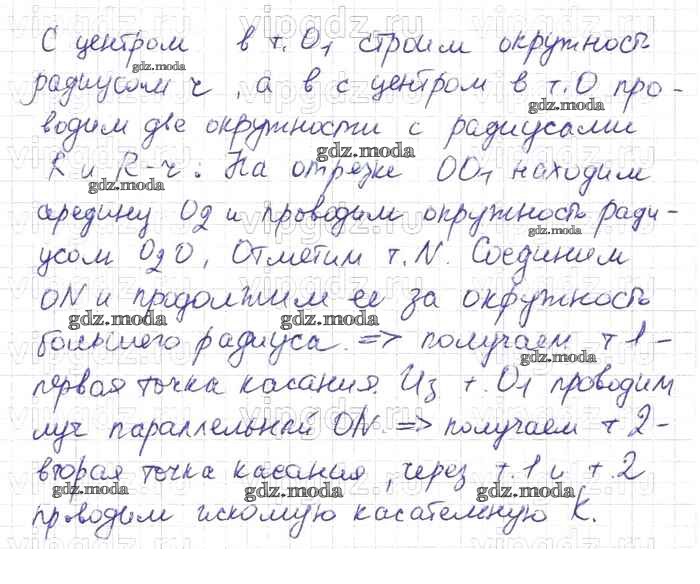 С центром в т. O1 строим окружность
радиусом r, а в с центром в т. O про-
водим две окружности с радиусами
R и R-r. На отрезке OO1 находим
середину O2 и проводим окружность ради-
усом O2O, Отметим т. N. Соединим
ON и продолжим ее за окружность
большего радиуса. => получаем т 1 -
первая точка касания. Из т. O1 проводим
луч параллельной ON. => получаем т 2 -
вторая точка касания, через т. 1 и т. 2
проводим искомую касательную K.